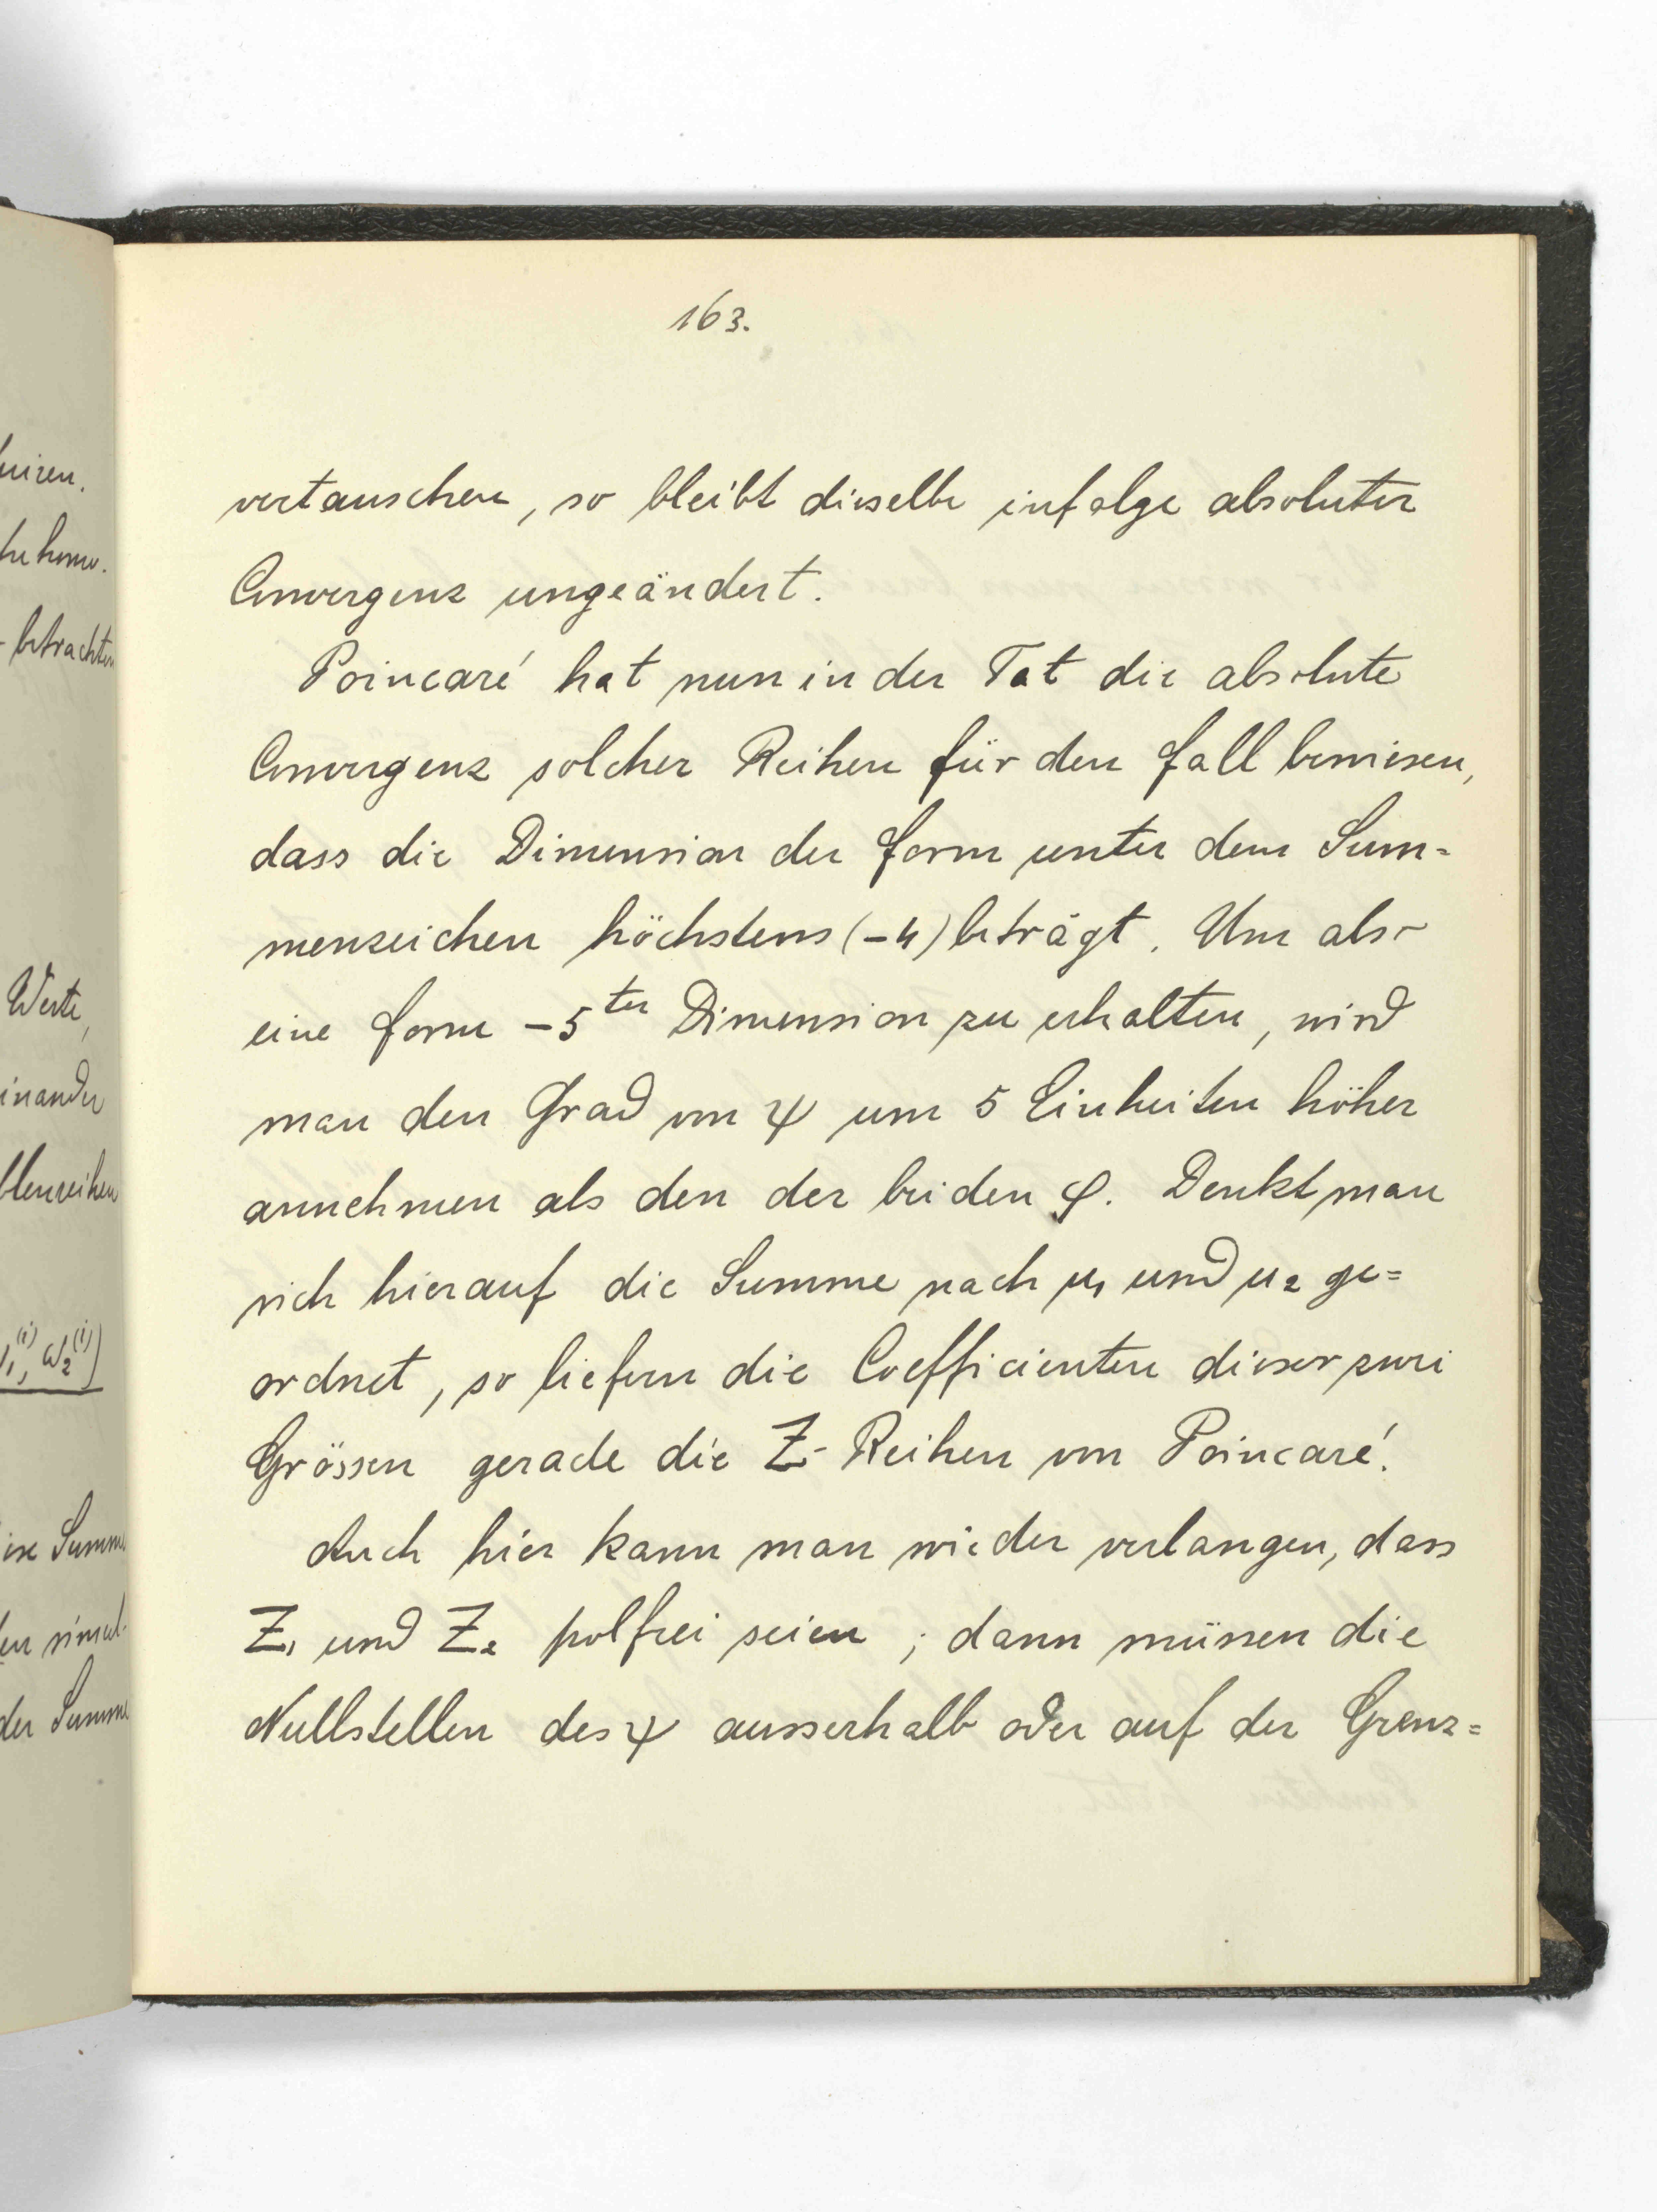 163.
vertauschen, so bleibt dieselbe infolge absoluter
Convergenz ungeändert.
Poincaré hat nun in der Tat die absolute
Convergenz solcher Reihen für den Fall bewiesen,
dass die Dimension der Form unter dem Sum=
menzeichen höchstens (-4) beträgt. Um also
eine Form -5ter Dimension zu erhalten, wird
man den Grad von ψ um 5 Einheiten höher
annehmen als den der beiden φ. Denkt man
sich hierauf die Summe nach u₁ und u₂ ge=
ordnet, so liefern die Coefficienten dieser zwei
Grössen gerade die Z-Reihen von Poincaré.
Auch hier kann man wieder verlangen, dass
Z₁ und Z₂ polfrei seien; dann müssen die
Nullstellen des ψ ausserhalb oder auf der Grenz=
betrachten
Werte,
inander
ω₂⁽ⁱ⁾)
Summe
der Summe